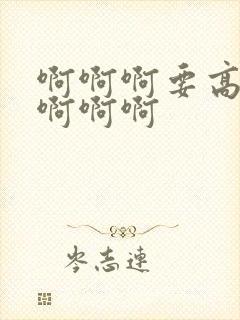 啊啊啊要高
啊啊啊
岑志连